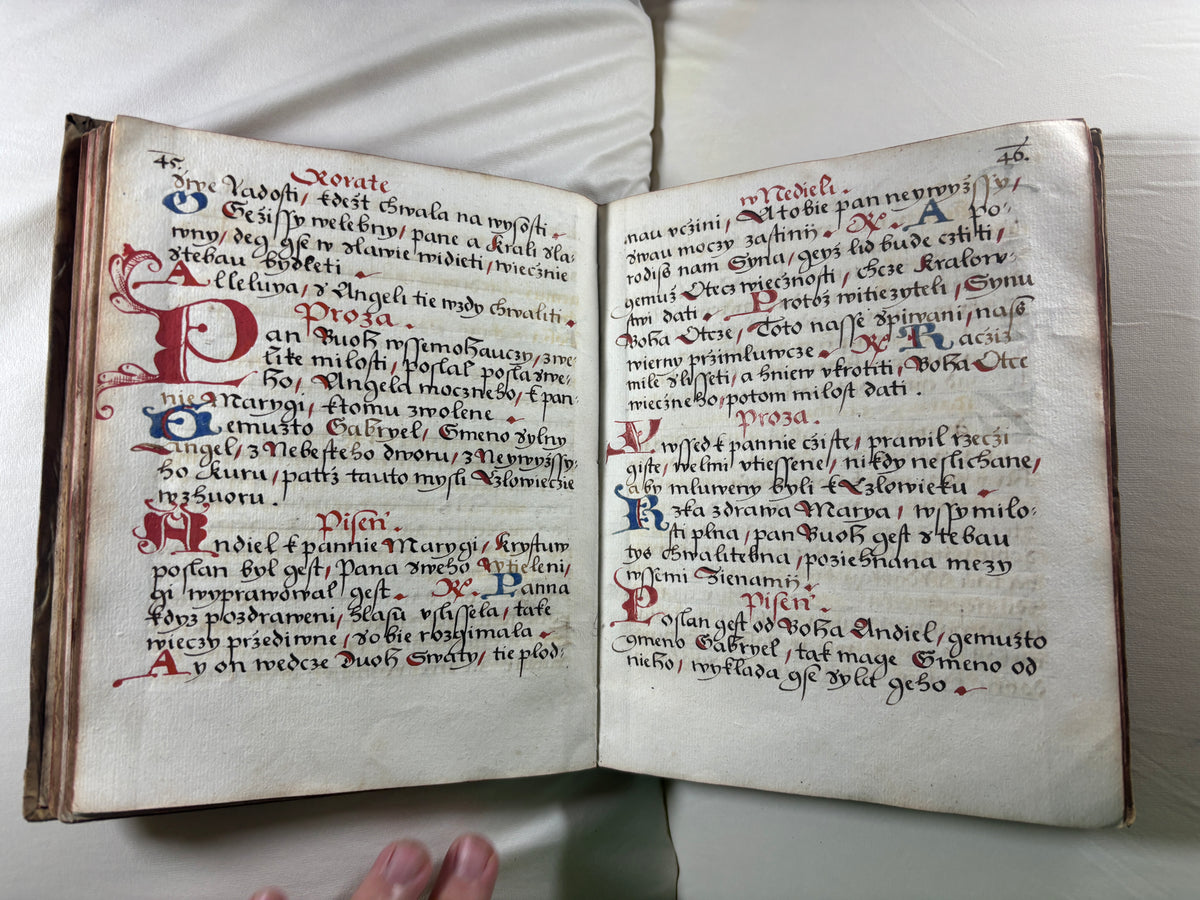 45.
Rorate
swe Radosti, kdežt chwala na wysosti.
O Gežissy welebny, pane a Krali sla-
wny, deg gse w slawie widieti, wiecžnie
stebau bydleti.
Alleluya, s Angeli tie wzdy chwaliti.
Proza.
Pan Buoh wssemohauczy, zwe-
like milosti, poslal posla swe-
ho, Angela mocneho, k pan-
nie Marygi, ktomu zwolene.
Gemužto Gabryel, Gmeno sylny
Angel, z Nebeskeho dworu, z Neywyžssy-
ho Kuru, patrž tauto mysli Cžlowiecžie
wzhuoru.
Pisen.
Andiel k pannie Marygi, Krystuw
poslan byl gest, Pana sweho wtieleni,
gi wyprawowal gest. R. Panna
když pozdraweni, hlasu vslissela, take
wieczy przediwne, sobie rozgimala.
Ay on wedcze Duoh Swaty, tie plod-
46.
w Nedieli.
nau včžini, A tobie pan neywyžssy,
swau moczy zastinij. R. A po-
rodiss nam Syna, geyž lid bude cžtiti,
gemuž Otecz wiecžnosti, chcze Kralow-
stwi dati. Protož witiezyteli, Synu
Boha Otcze, Toto nasse spiwani, naš
wierny pržimluwcze. R. Racžiž
mile slisseti, a hniew vkrotiti, Boha Otce
wiecžneho, potom milost dati.
Proza.
Vwssed k pannie cžiste, prawil rzecži
giste, welmi vtiessene, nikdy neslichane,
aby mluweny byli k Cžlowieku.
Rzka zdrawa Marya, wssy milo-
sti plna, pan Buoh gest stebau
tys chwalitebna, poziehnana mezy
wssemi Zienamij.
Pisen.
Poslan gest od Boha Andiel, gemužto
gmeno Gabryel, tak mage Gmeno od
nieho, wyklada gse syla geho.